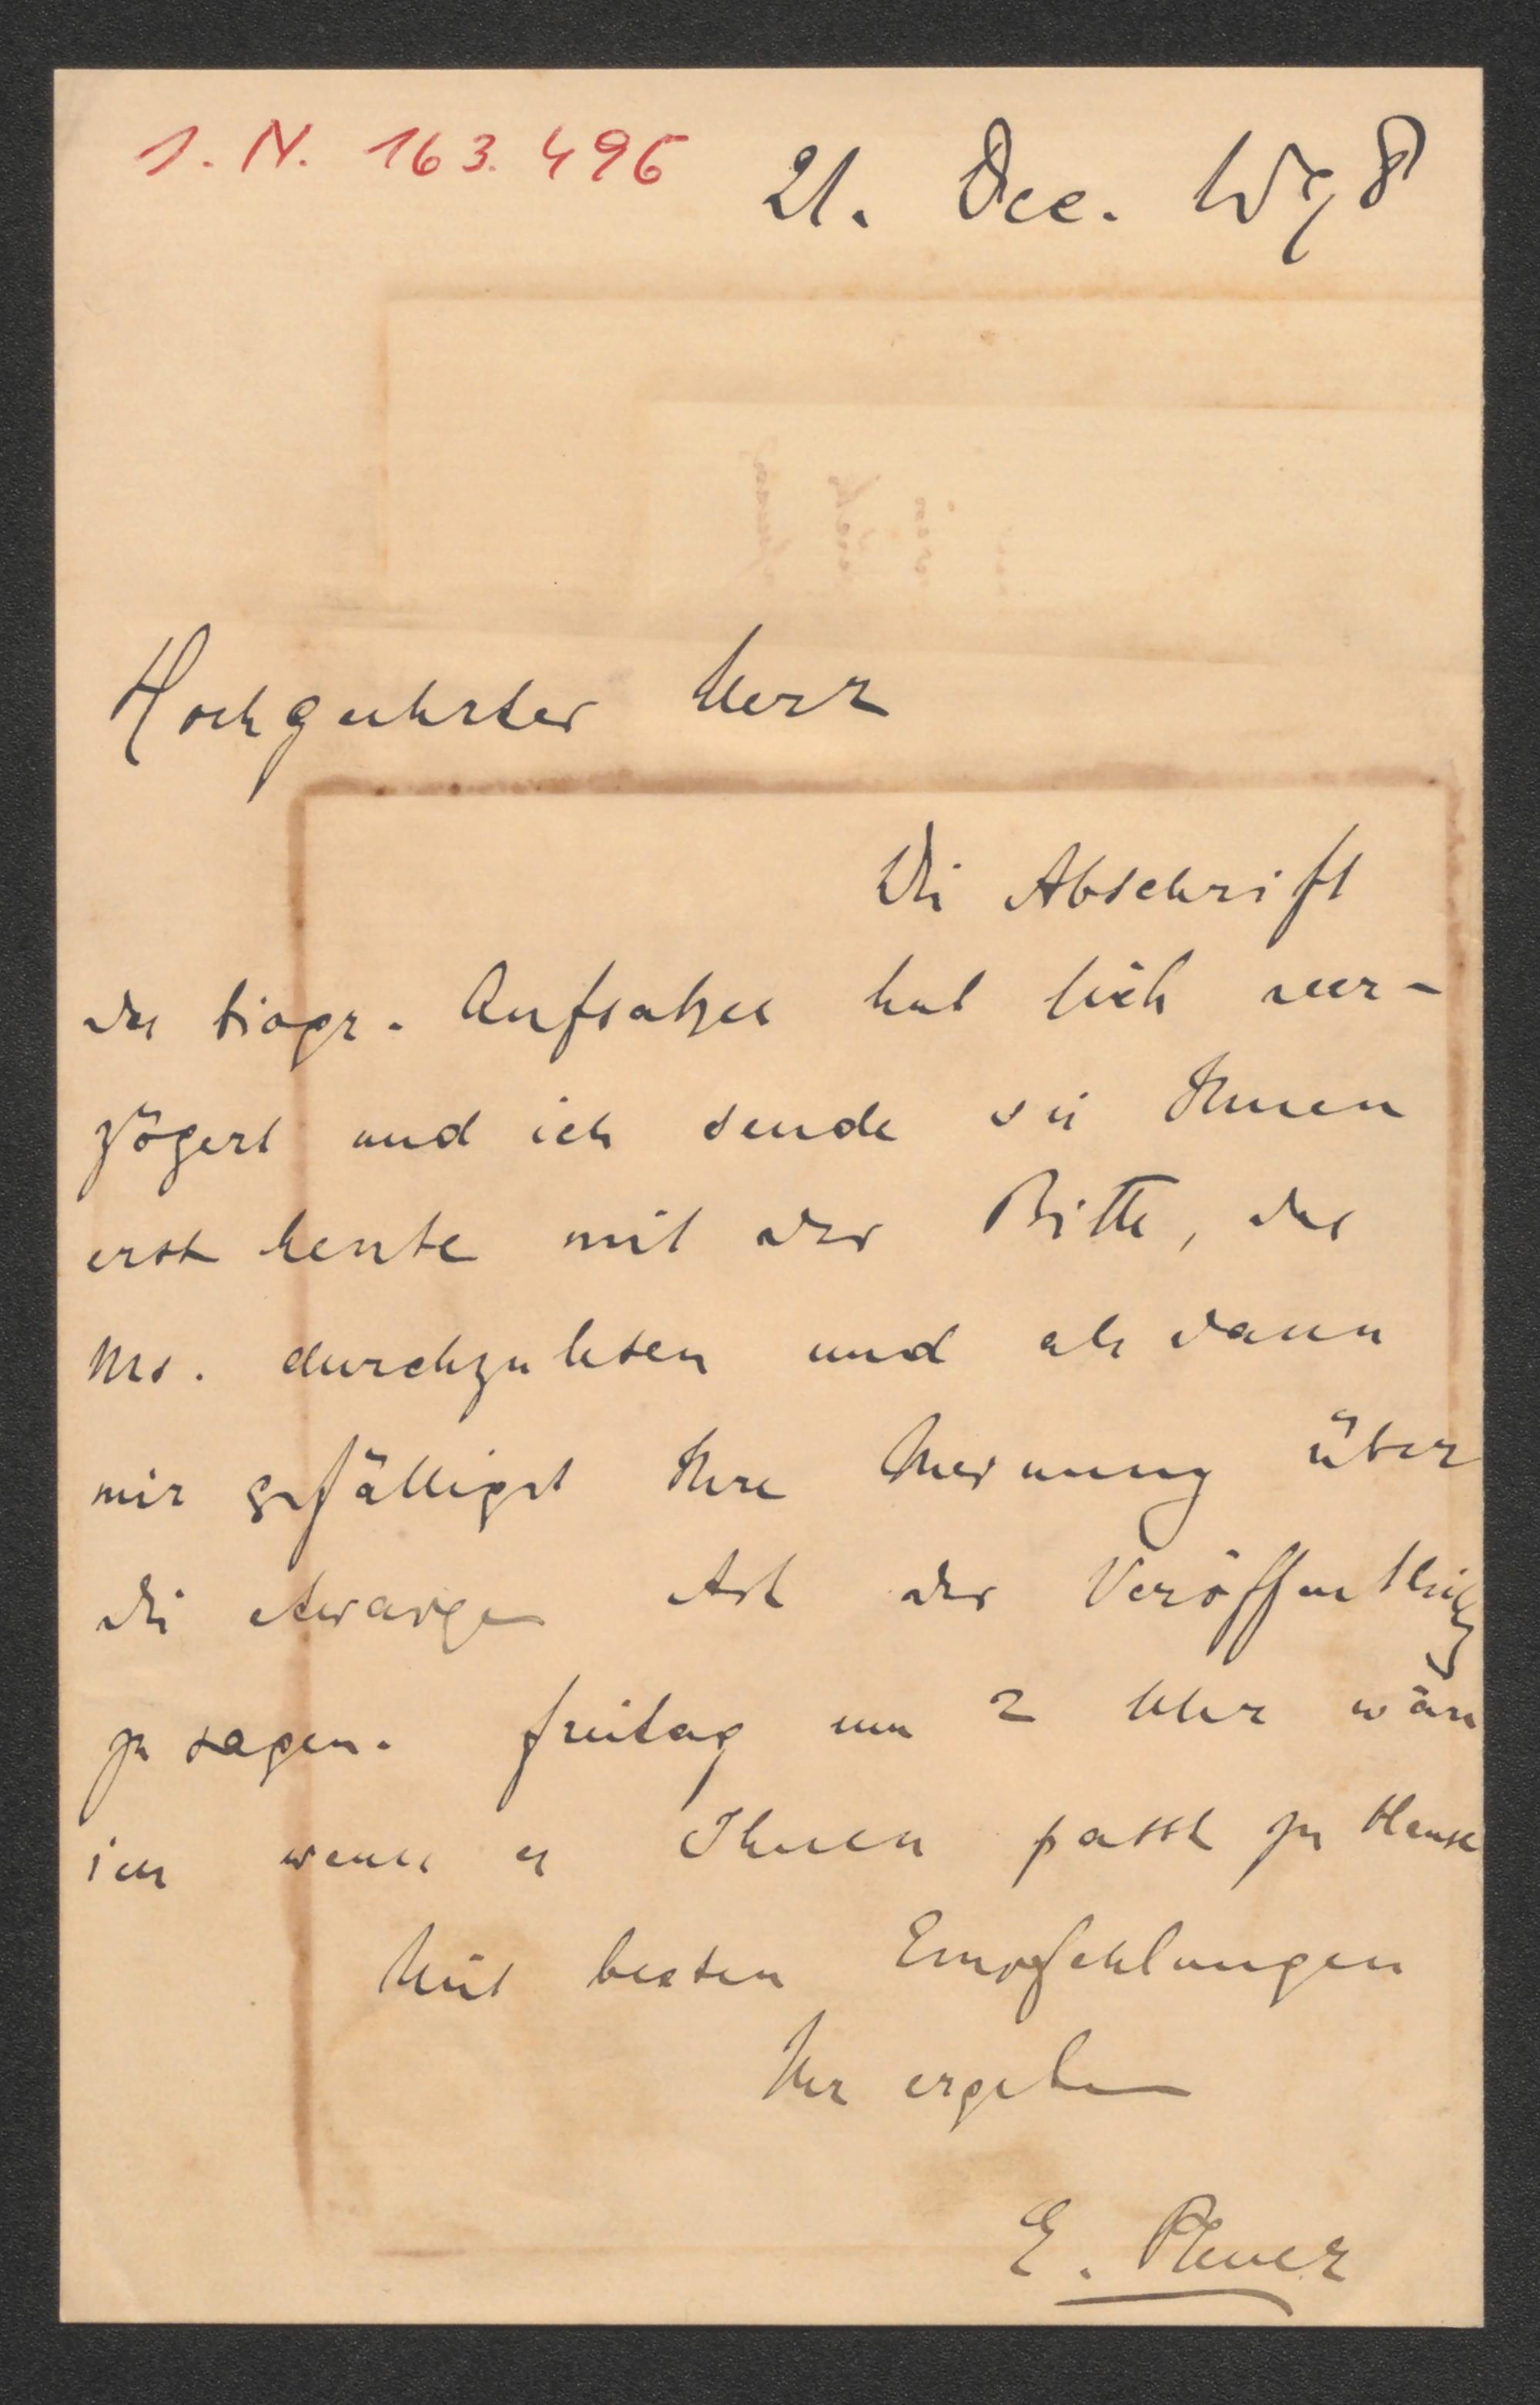 I. N. 163.496
21. Dec. 1898
Hochgeehrter Herr
Die Abschrift
des biogr. Aufsatzes hat sich ver-
zögert und ich sende sie Ihnen
erst heute mit der Bitte, das
Ms. durchzulesen und als dann
mir gefälligst Ihre Meinung über
die etwaige Art der Veröffentlichg
zu sagen. Freitag um 2 Uhr wäre
ich wenn es Ihnen passt zu Hause
Mit besten Empfehlungen
Ihr ergeben
E. Plener